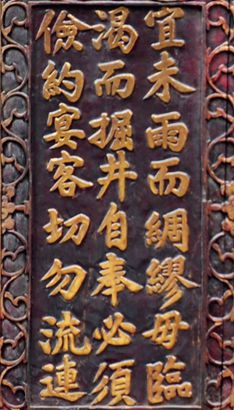 宜未雨而綢繆毋臨
渴而掘井自奉必須
儉約宴客切勿流連